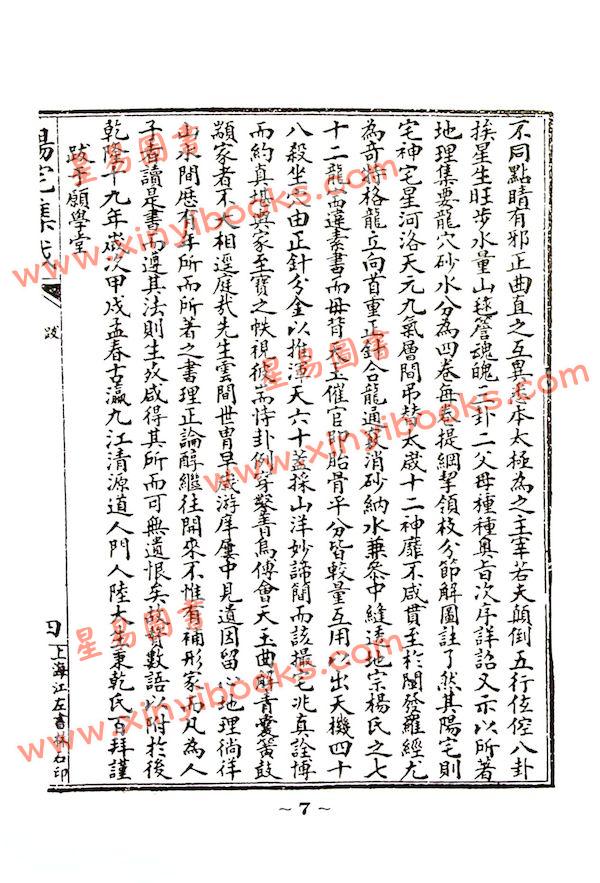 不同點睛有邪正曲直之互異悉本太極為之主宰若夫顛倒五行倥倥八卦
挨星生旺步水量山逐層魂魄二卦二父母種種奧旨次序詳諮又示以所著
地理集要龍穴砂水分為四卷每卷提綱挈領枝分節解圖註了然其陽宅則
宅神宅星河洛天元九氣層間吊替太歲十二神靡不咸貫至於闡發羅經尤
為奇特格龍立向首重正針合龍通竅消砂納水兼叅中縫透地宗楊氏之七
十二龍而違素書而毋背天玉催官即胎骨平分皆較量互用以出天機四十
八殺坐穴由正針分金以推渾天六十蓋採山洋妙諦簡而該撮宅兆真詮博
而約真堪輿家至寶之帙視彼而恃卦例穿鑿青烏傅會天玉曲解青囊簧鼓
顓家者不大相逕庭哉先生雲間世胄早歲游庠屢中見遺因留心地理徜徉
山水間歷有年所而所著之書理正論醇繼往開來不惟有補形家而凡為人
子者讀是書而遵其法則生歿咸得其所而可無遺恨矣故贅數語以附於後
乾隆十九年歲次甲戌孟春古瀛九江清源道人門人陸大生秉乾氏百拜謹
跋于願學堂
陽宅集成
跋
上海江左書林石印
星易圖書
www.xinyibooks.com
星易圖書
www.xinyibooks.com
星易圖書
www.xinyibooks.com
~ 7 ~